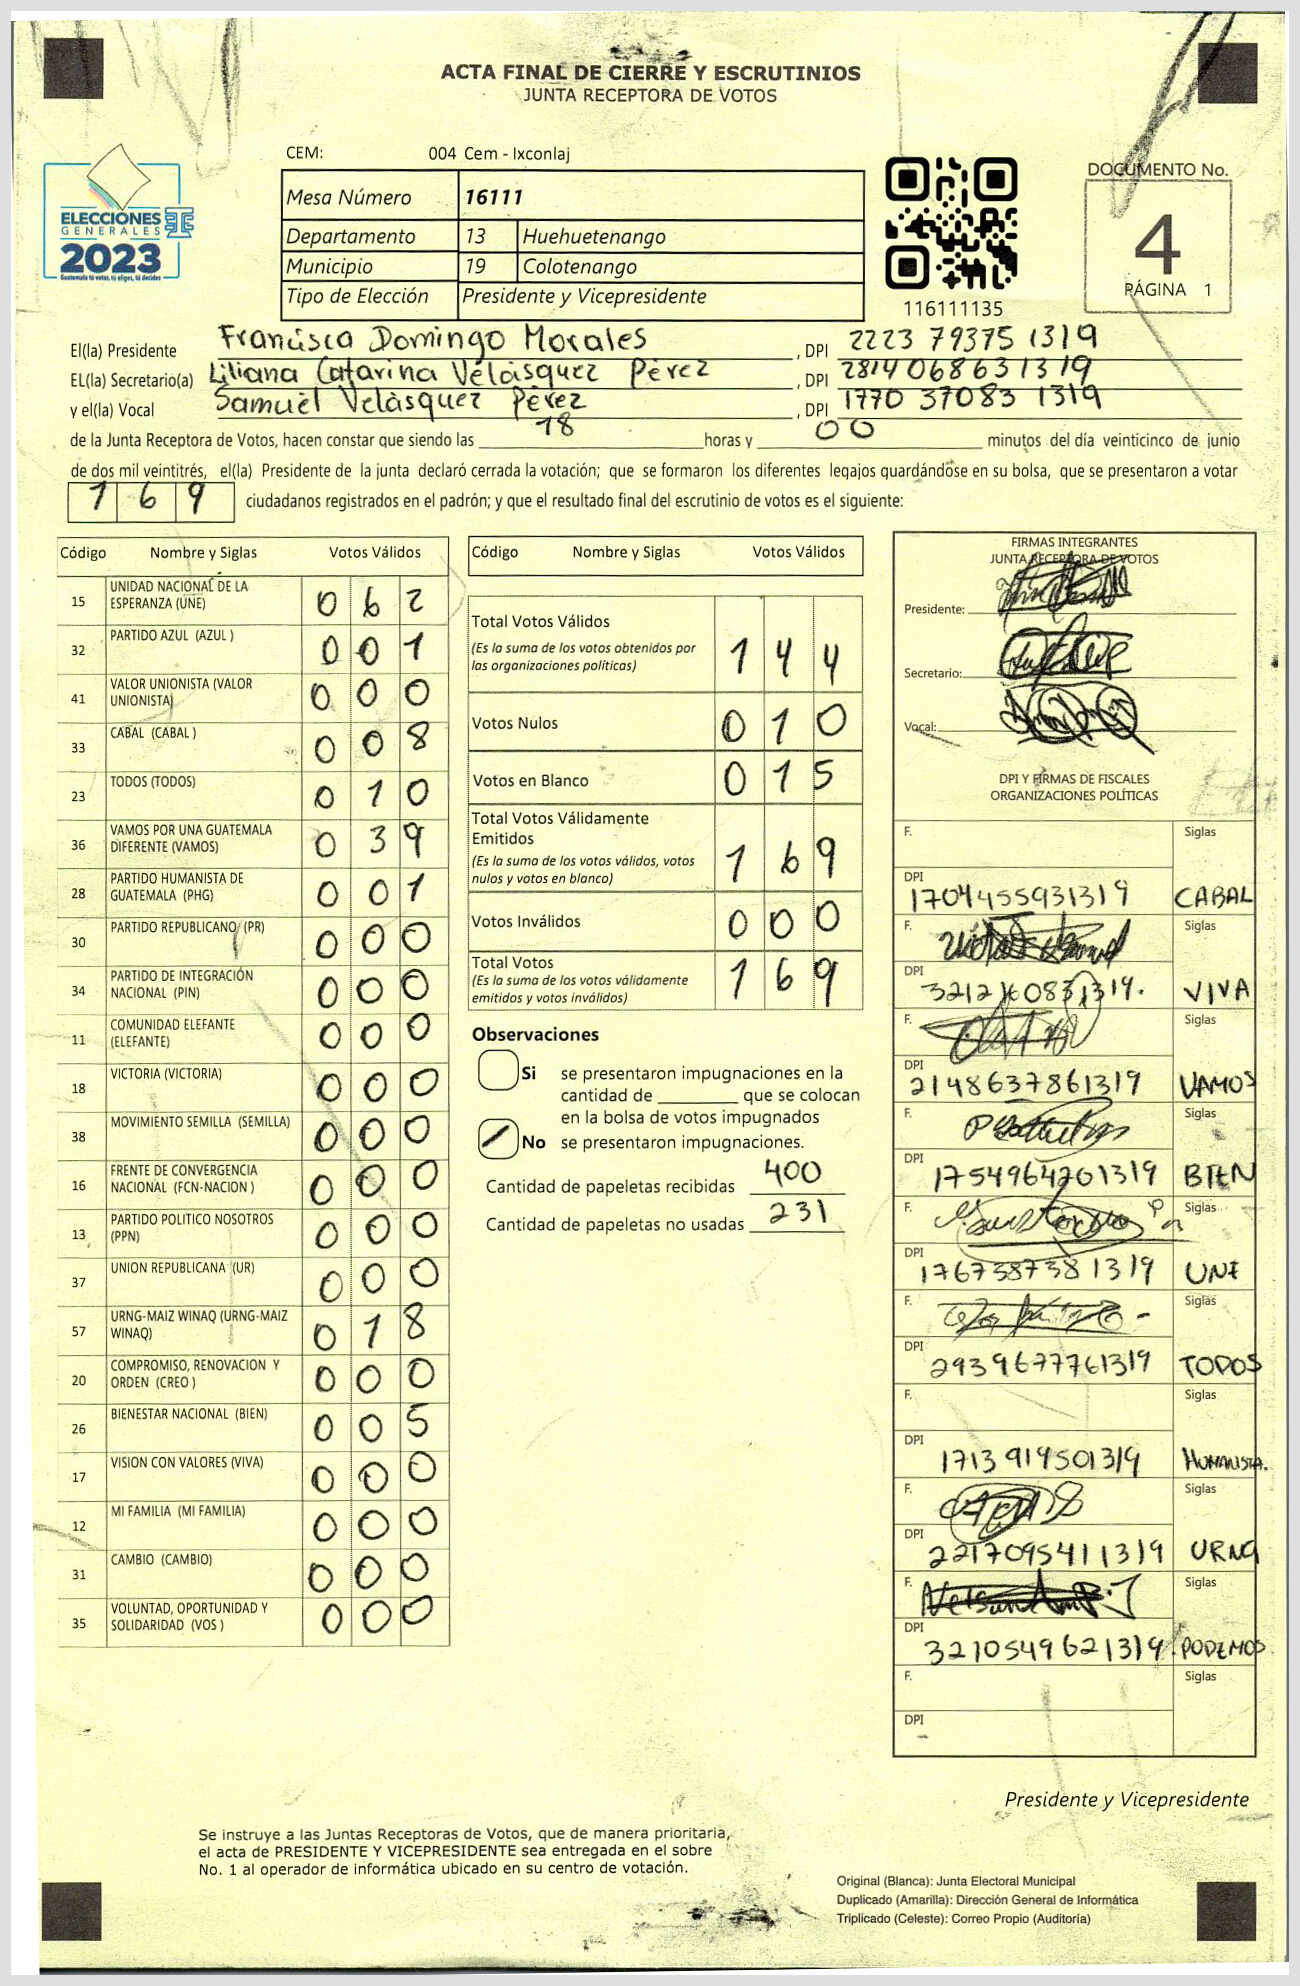 ACTA FINAL DE CIERRE Y ESCRUTINIOS
JUNTA RECEPTORA DE VOTOS
ELECCIONES
GENERALES
2023
Guatemala tú votas, tú eliges, tú decides
CEM: 004 Cem - Ixconlaj
Mesa Número 16111
Departamento 13 Huehuetenango
Municipio 19 Colotenango
Tipo de Elección Presidente y Vicepresidente
116111135
DOCUMENTO No.
4
PÁGINA 1
El(la) Presidente Francisca Domingo Morales, DPI 2223 79375 1319
EL(la) Secretario(a) Liliana Catarina Velásquez Pérez, DPI 2814 06863 1319
y el(la) Vocal Samuel Velásquez Pérez, DPI 1770 37083 1319
de la Junta Receptora de Votos, hacen constar que siendo las 18 horas y 00 minutos del día veinticinco de junio
de dos mil veintitrés, el(la) Presidente de la junta declaró cerrada la votación; que se formaron los diferentes legajos guardándose en su bolsa, que se presentaron a votar
169 ciudadanos registrados en el padrón; y que el resultado final del escrutinio de votos es el siguiente:
Código Nombre y Siglas Votos Válidos
15 UNIDAD NACIONAL DE LA ESPERANZA (UNE) 062
32 PARTIDO AZUL (AZUL ) 001
41 VALOR UNIONISTA (VALOR UNIONISTA) 000
33 CABAL (CABAL ) 008
23 TODOS (TODOS) 010
36 VAMOS POR UNA GUATEMALA DIFERENTE (VAMOS) 039
28 PARTIDO HUMANISTA DE GUATEMALA (PHG) 001
30 PARTIDO REPUBLICANO (PR) 000
34 PARTIDO DE INTEGRACIÓN NACIONAL (PIN) 000
11 COMUNIDAD ELEFANTE (ELEFANTE) 000
18 VICTORIA (VICTORIA) 000
38 MOVIMIENTO SEMILLA (SEMILLA) 000
16 FRENTE DE CONVERGENCIA NACIONAL (FCN-NACION ) 000
13 PARTIDO POLITICO NOSOTROS (PPN) 000
37 UNION REPUBLICANA (UR) 000
57 URNG-MAIZ WINAQ (URNG-MAIZ WINAQ) 018
20 COMPROMISO, RENOVACION Y ORDEN (CREO ) 000
26 BIENESTAR NACIONAL (BIEN) 005
17 VISION CON VALORES (VIVA) 000
12 MI FAMILIA (MI FAMILIA) 000
31 CAMBIO (CAMBIO) 000
35 VOLUNTAD, OPORTUNIDAD Y SOLIDARIDAD (VOS ) 000
Código Nombre y Siglas Votos Válidos
Total Votos Válidos 144
(Es la suma de los votos obtenidos por
las organizaciones políticas)
Votos Nulos 010
Votos en Blanco 015
Total Votos Válidamente
Emitidos 169
(Es la suma de los votos válidos, votos
nulos y votos en blanco)
Votos Inválidos 000
Total Votos 169
(Es la suma de los votos válidamente
emitidos y votos inválidos)
Observaciones
Si se presentaron impugnaciones en la
cantidad de ________ que se colocan
en la bolsa de votos impugnados
No se presentaron impugnaciones.
Cantidad de papeletas recibidas 400
Cantidad de papeletas no usadas 231
FIRMAS INTEGRANTES
JUNTA RECEPTORA DE VOTOS
Presidente:
Secretario:
Vocal:
DPI Y FIRMAS DE FISCALES
ORGANIZACIONES POLÍTICAS
F. Siglas
DPI 1704455931319 CABAL
F. Siglas
DPI VIVA
F. Siglas
DPI 2148637861319 VAMOS
F. Siglas
DPI 1754964201319 BIEN
F. Siglas
DPI 1767387381319 UNE
F. Siglas
DPI 2939677761319 TODOS
F. Siglas
DPI 1713914501319 HUMANISTA.
F. Siglas
DPI 2217095411319 URNG
F. Siglas
DPI 3210549621319 PODEMOS
F. Siglas
DPI
Presidente y Vicepresidente
Se instruye a las Juntas Receptoras de Votos, que de manera prioritaria,
el acta de PRESIDENTE Y VICEPRESIDENTE sea entregada en el sobre
No. 1 al operador de informática ubicado en su centro de votación.
Original (Blanca): Junta Electoral Municipal
Duplicado (Amarilla): Dirección General de Informática
Triplicado (Celeste): Correo Propio (Auditoría)